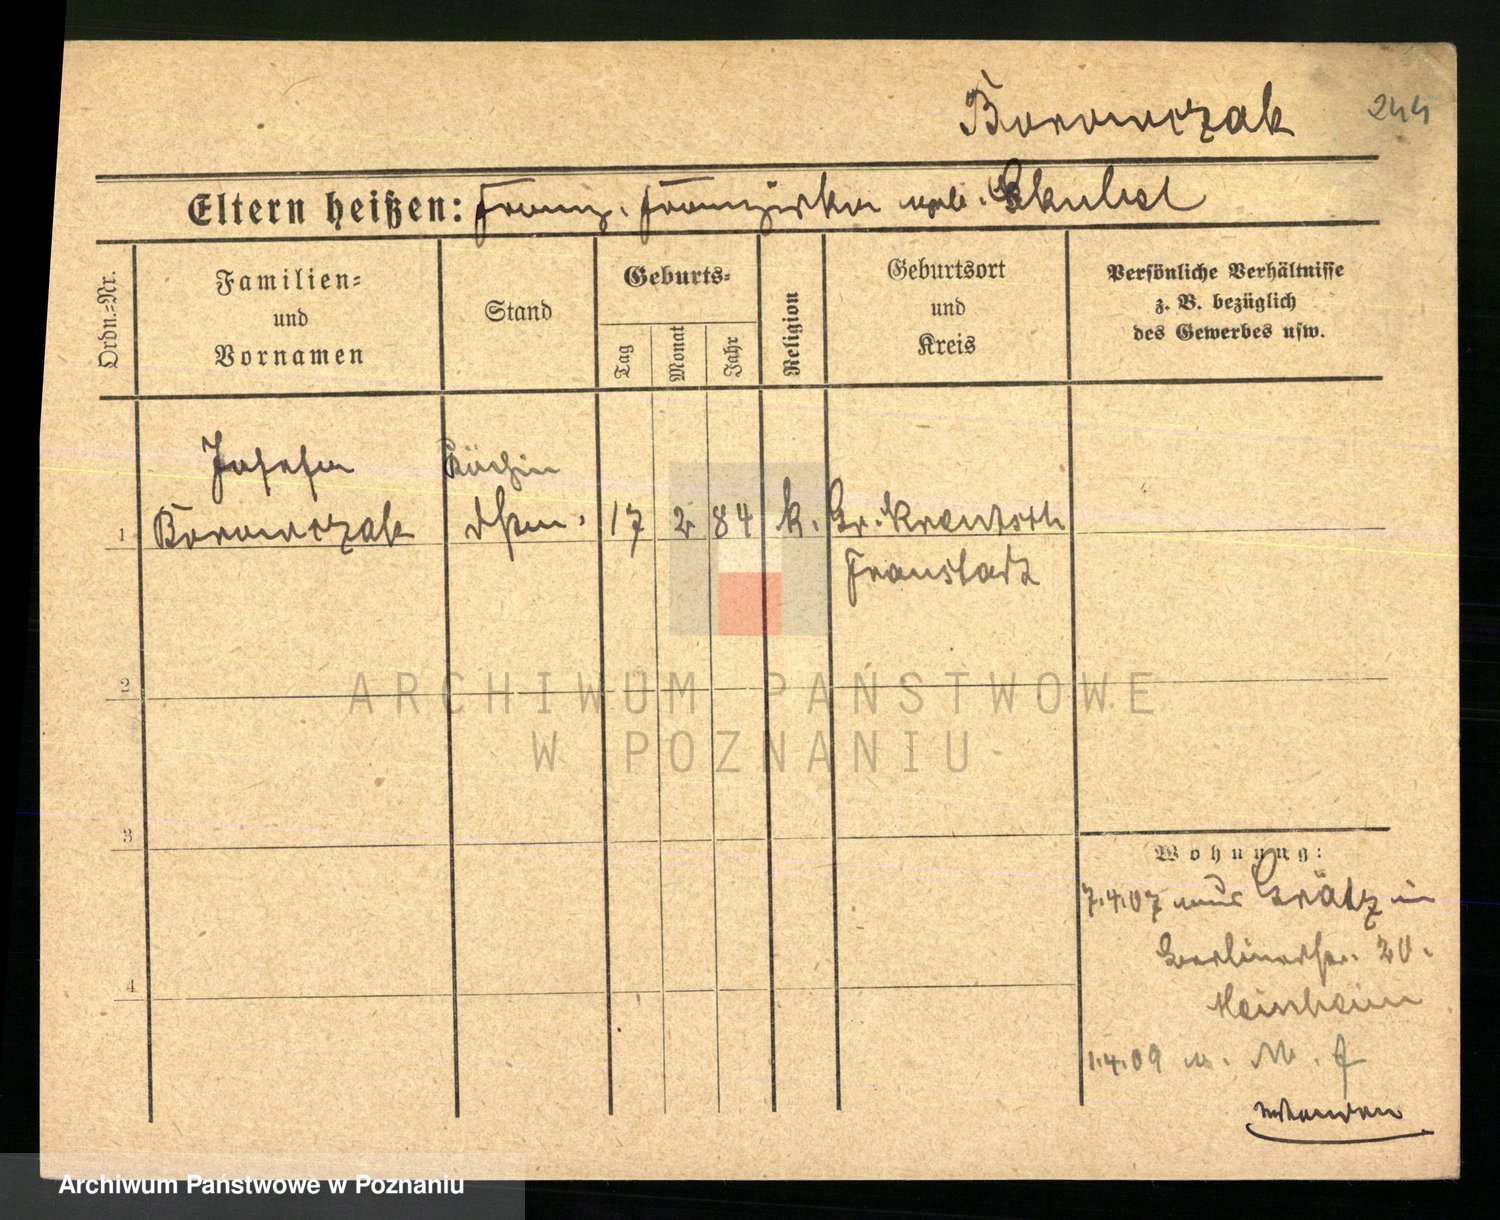 Borowczak 244
Eltern heißen: Franz. Franziska geb. Skubel
Ordn.-Nr.
Familien-
und
Vornamen
Stand
Geburts-
Tag
Monat
Jahr
Religion
Geburtsort
und
Kreis
Persönliche Verhältnisse
z. B. bezüglich
des Gewerbes usw.
Josefa Köchin
1 Borowczak 17 2 84 k. Gr. Kreutsch
Fraustadt
2
3
4
Wohnung:
7.4.07 aus Grätz in
Berlinerstr. 20.
1.4.09 n.
ARCHIWUM PAŃSTWOWE
W POZNANIU
Archiwum Państwowe w Poznaniu